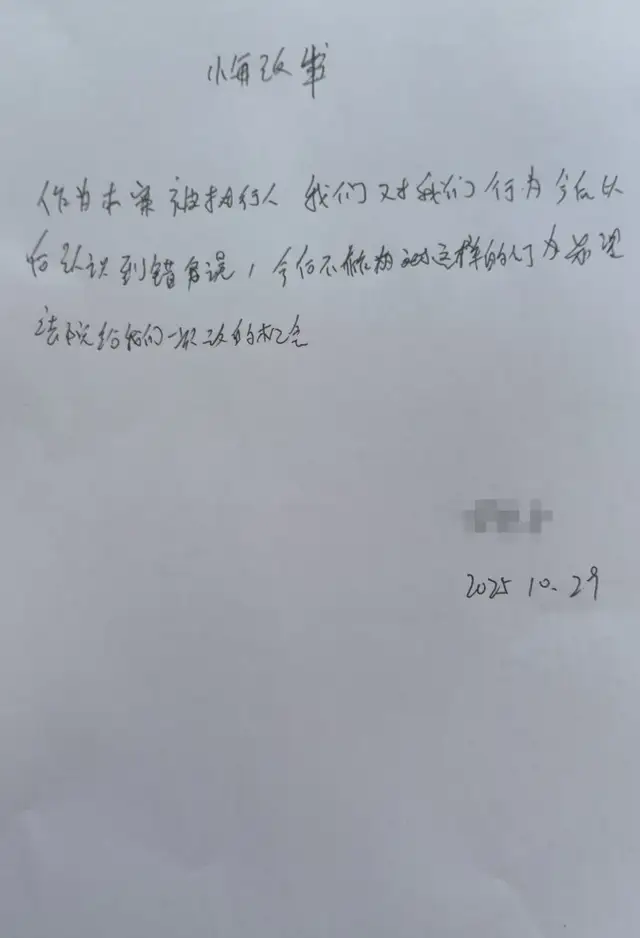 悔改书
作为本案被执行人 我们对我们行为今后从
后认识到错误，今后不 这样的行为希望
法院给我们一次改的机会
2025 10.29